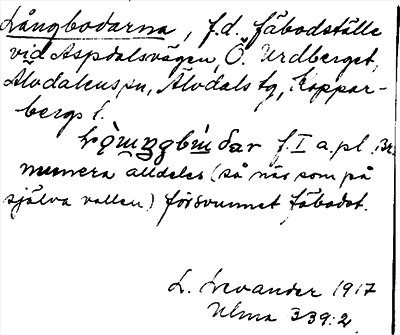 Långbodarna, f.d. fäbodställe
vid Aspdalsvägen, Ö. Urdberget,
Älvdalens sn, Älvdals tg, Koppar-
bergs l.
f. I a. pl.
numera alldeles (så när som på
själva vallen) försvunnet fäbodst.
L. Levander 1917
Ulma 339:2